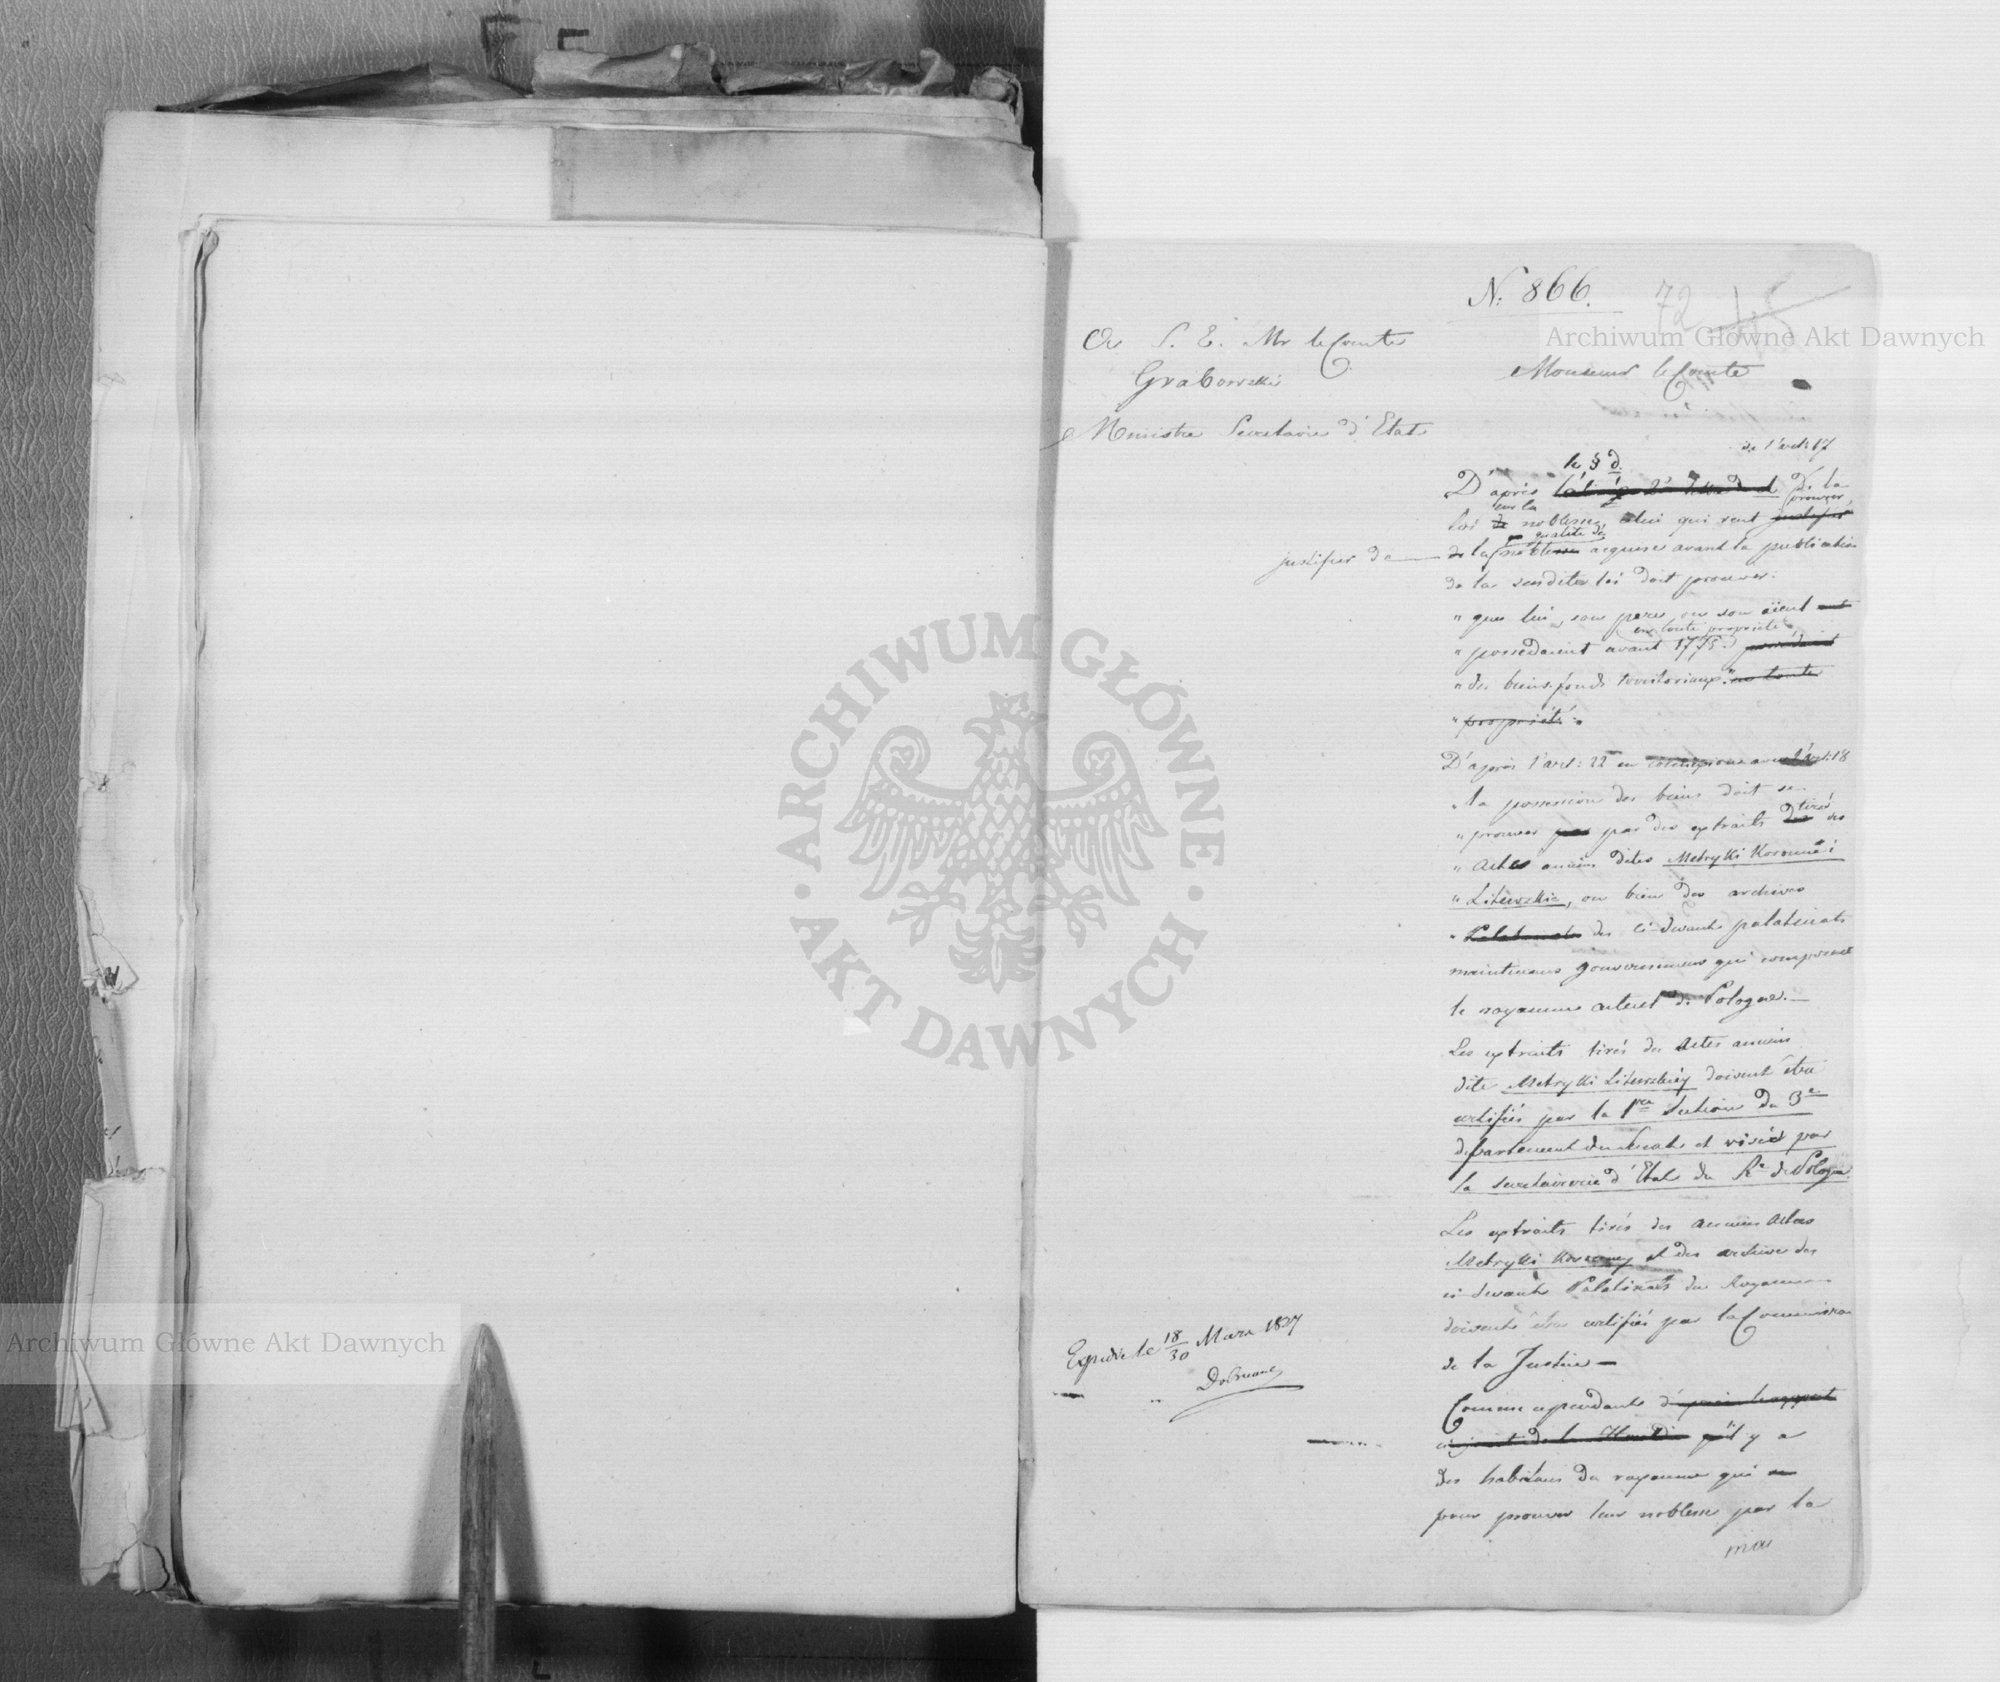 N: 866.
72
A S. E. Mr le Comte
Grabowski
Ministre Secretaire d'Etat
Monsieur le Comte
de l'art: 17
le § d.
D'après de la
sur la prouver
loi de noblesse, celui qui veut justifier
qualité de
justifier de
de la noblesse acquise avant la publication
de la susdite loi doit prouver:
" que lui, son pere, ou son aïeul ont
en toute propriété
" possedaient avant 1775 possédaient
" des biens-fonds territoriaux " en toute
" propriété.
D'après l'art: 22 en l'art: 18
" la possession des biens doit se
tirés
" prouver par des extraits des
" Actes anciens dites Metryki Koronne i
" Litewskie, ou bien des archives
" Palatinats des ci-devants palatinats
maintenant gouvernemens qui composent
le royaume actuel de Pologne.—
Les extraits tirés des Actes anciens
dits Metryki Litewskiey doivent être
certifiés par la 1re Section du 3e
departement du Senat et visés par
la secretairerie d'Etat du Re de Pologne.
Les extraits tirés des anciens Actes
Metryki Koronney et des archives des
ci-devants Palatinats du Royaume
doivent être certifiés par la Commission
de la Justice —
Comme cependant d'après le rapport
qu'il y a
des habitans du royaume qui
pour prouver leur noblesse par la
Expedié le 18/30 Mars 1837
Archiwum Główne Akt Dawnych
Archiwum Główne Akt Dawnych
ARCHIWUM GŁÓWNE
AKT DAWNYCH